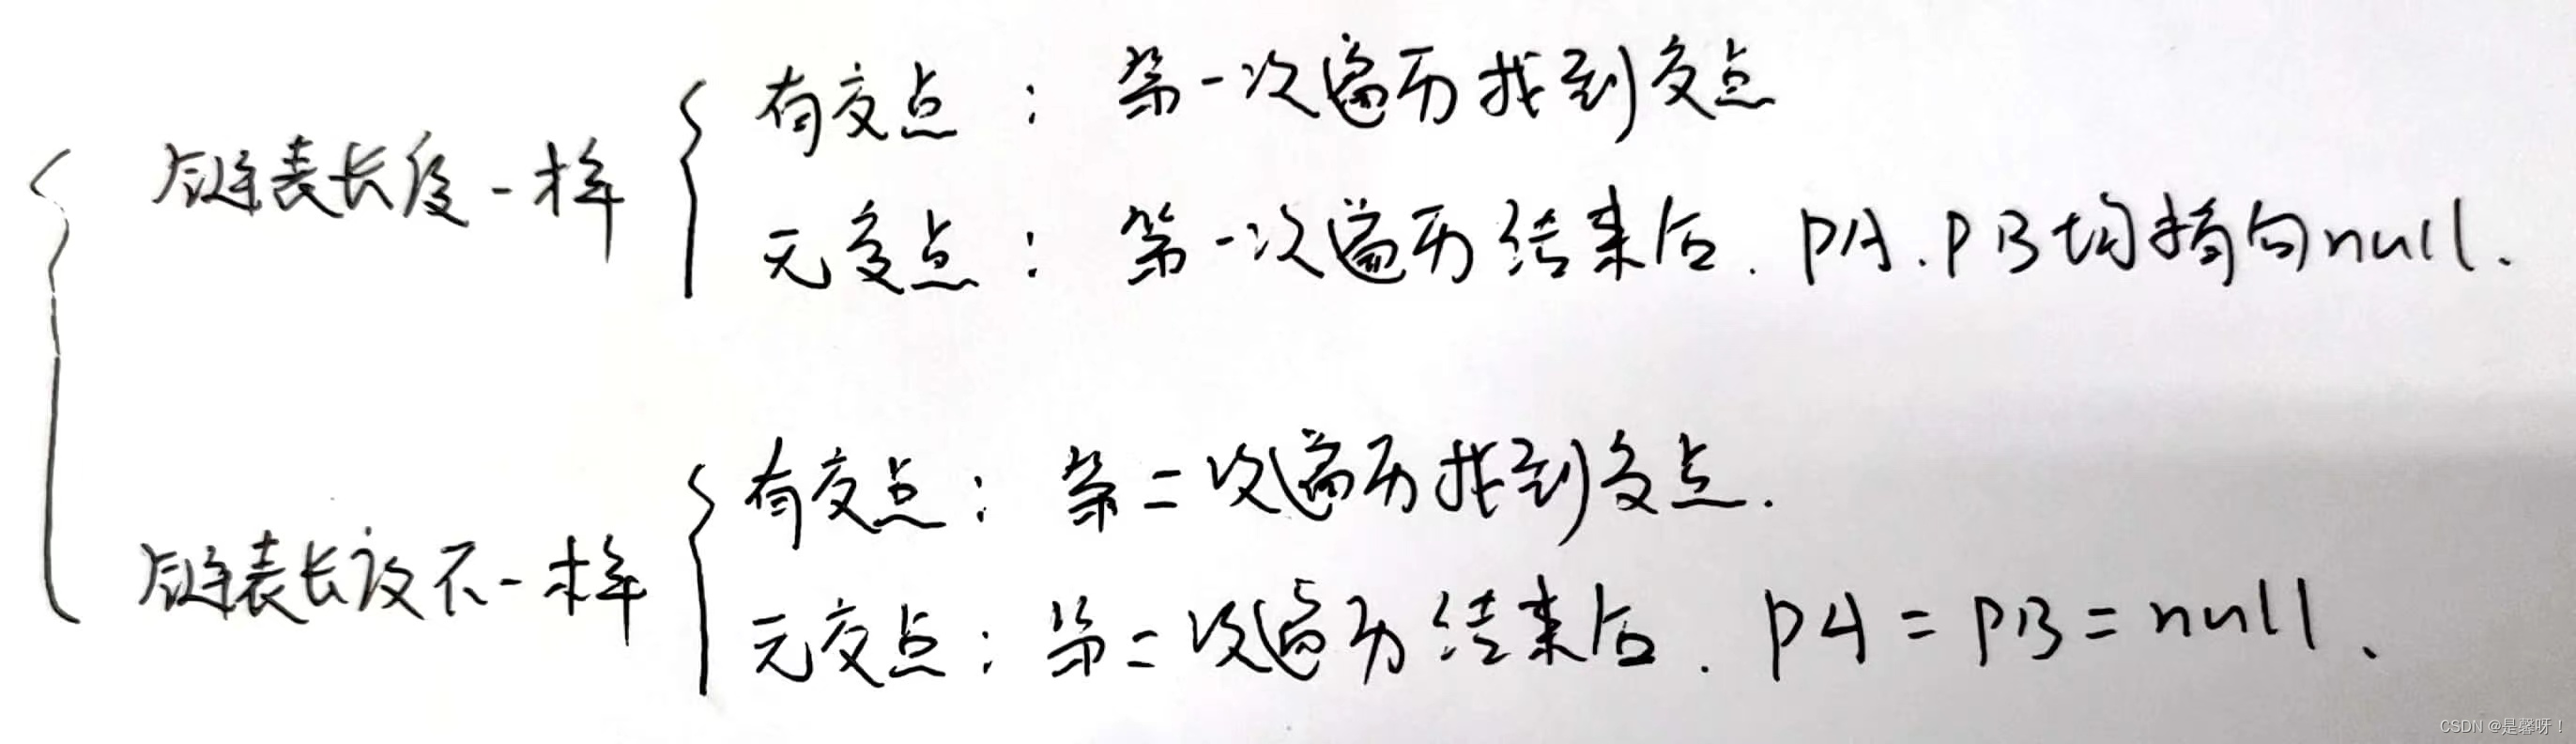 链表长度一样
有交点：第一次遍历找到交点
无交点：第一次遍历结束后．PA．PB均指向null．
链表长度不一样
有交点：第二次遍历找到交点．
无交点：第二次遍历结束后．PA＝PB＝null、
CSDN @是馨呀！